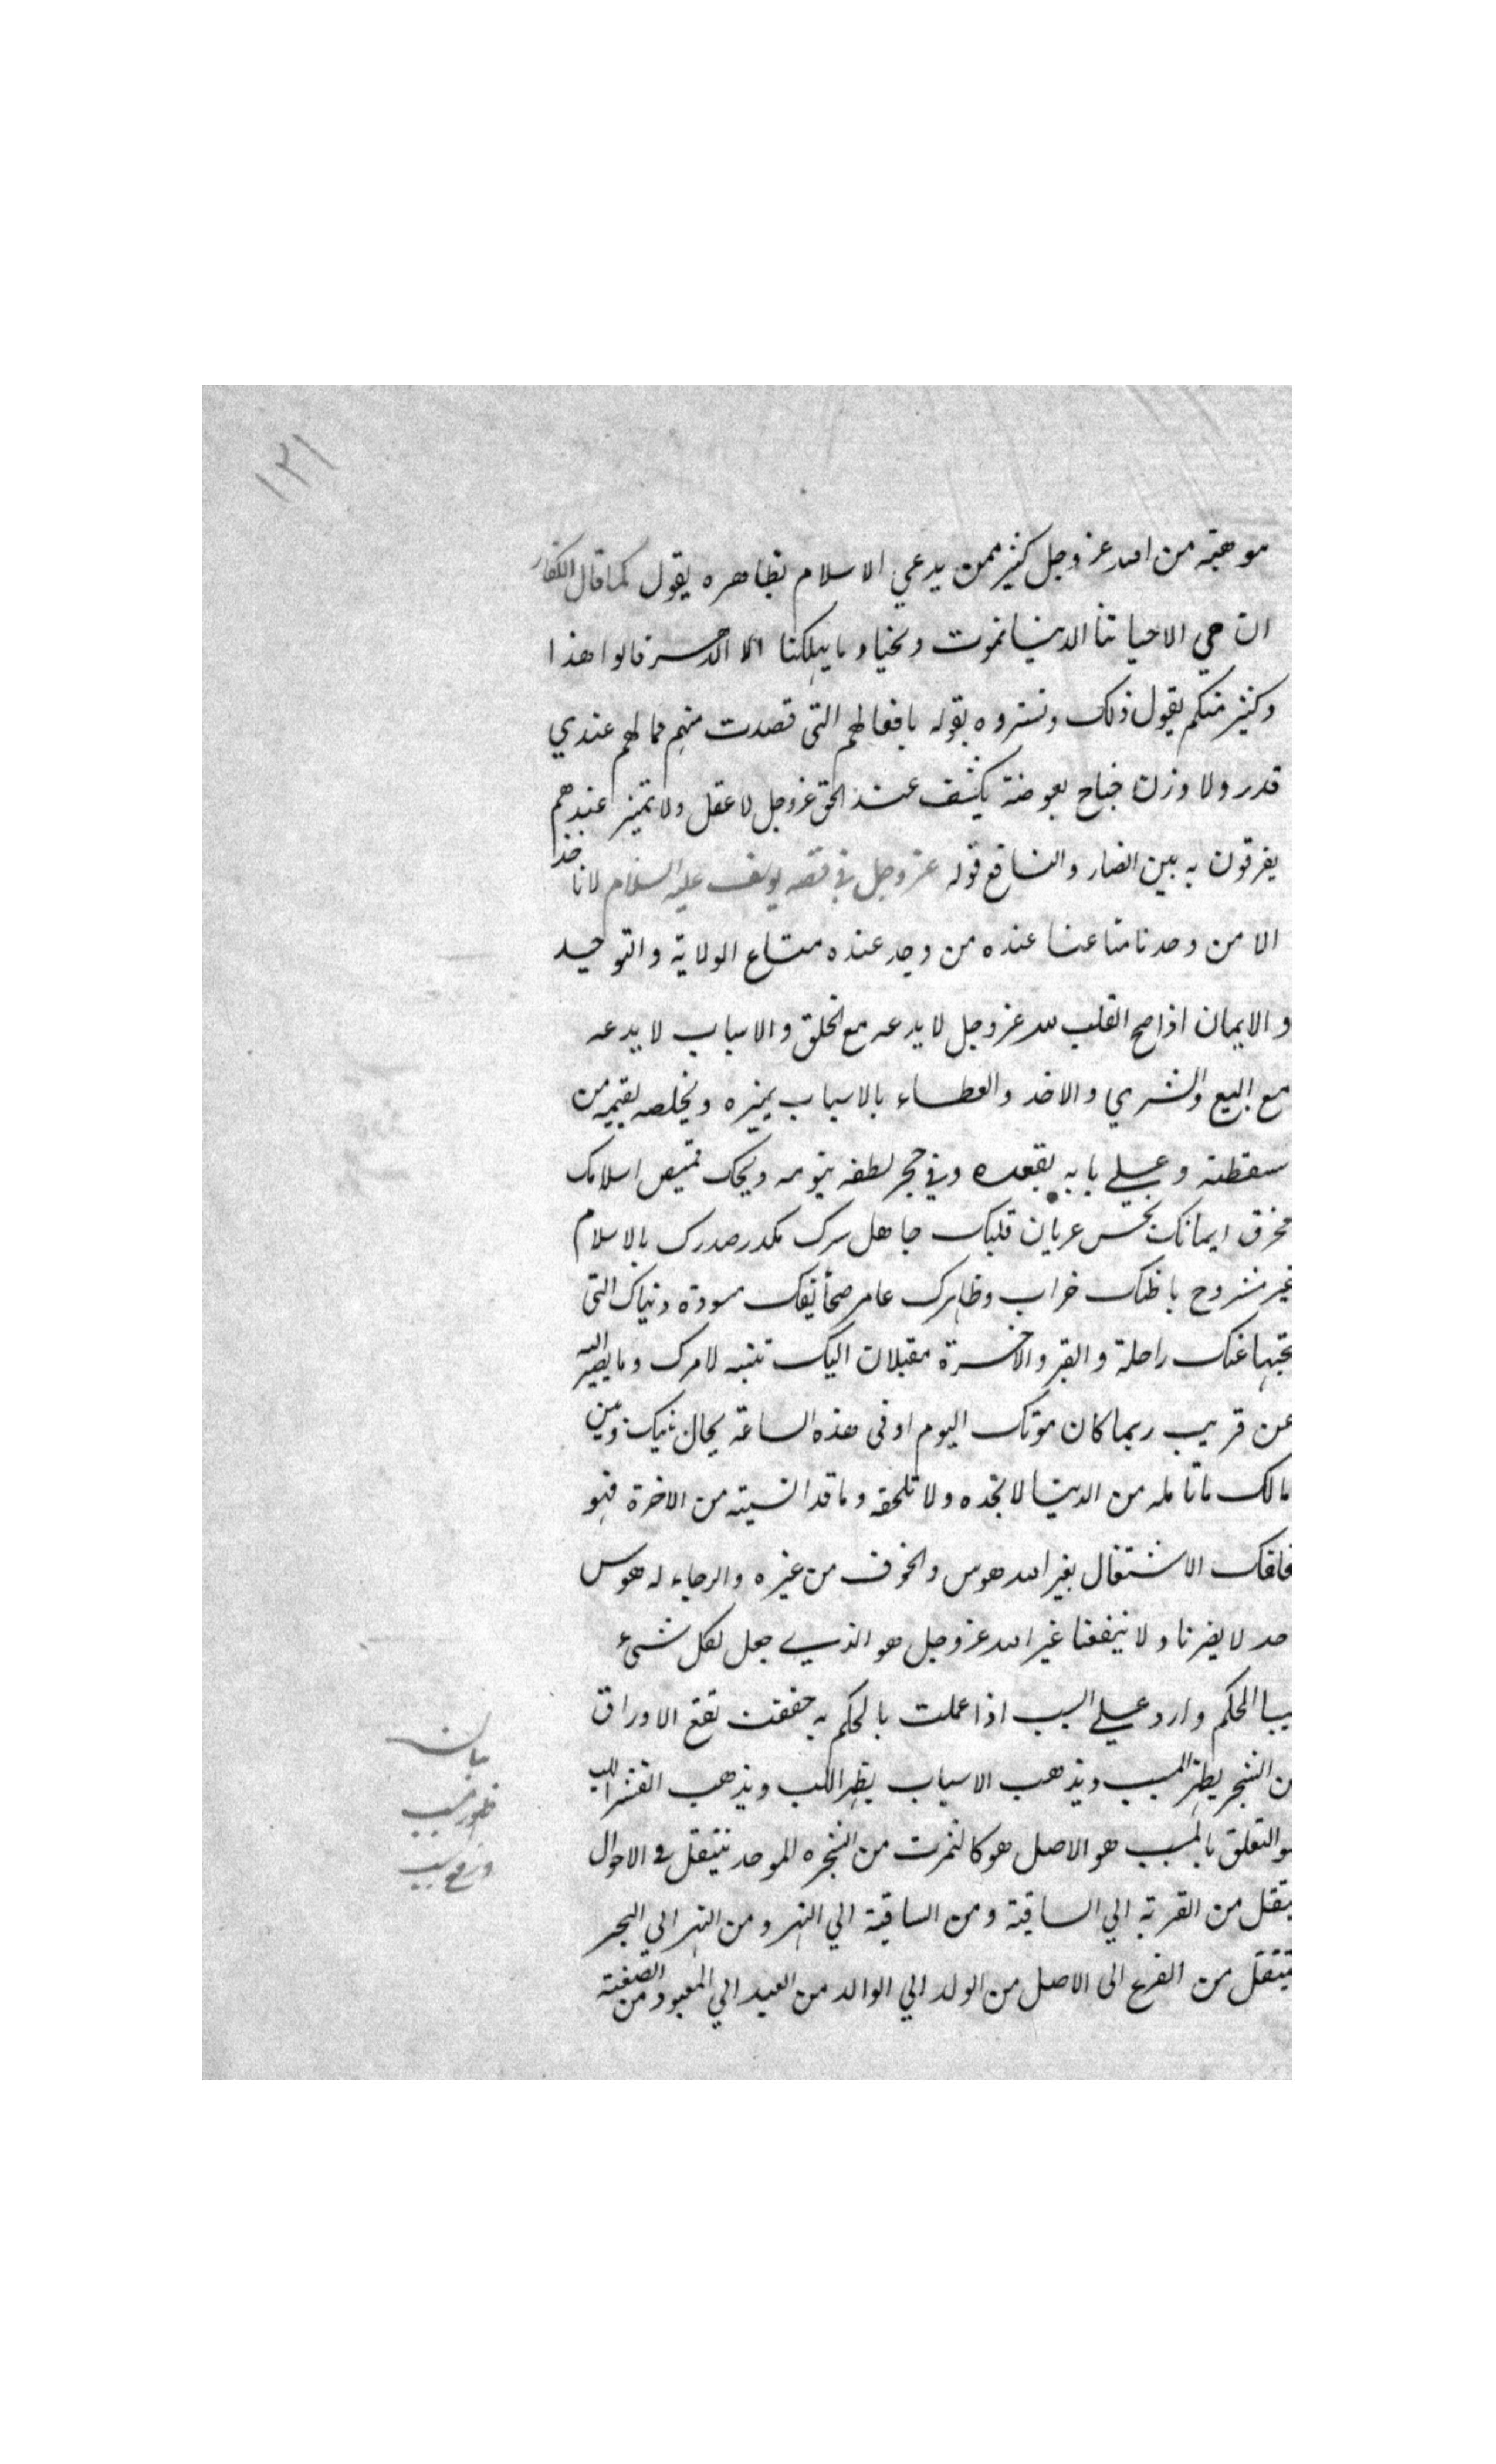 ١٢١
موهبة من الله عز وجل كثير ممن يدعي الاسلام بظاهره يقول كما قال الكفار
ان هي الا حياتنا الدنيا نموت ونحيا وما يهلكنا الا الدهر قالوا هذا
وكثير منكم يقول ذلك ونستروه بقوله بافعالهم التي قصدت منهم فما لهم عندي
قدر ولا وزن جناح بعوضة يكشف عند الحق عز وجل لا عقل ولا تميز عندهم
يفرقون به بين الضار والنافع قوله عز وجل في قصه يوسف عليه السلام لا ناخذ
الا من وجدنا متاعنا عنده من وجد عنده متاع الولاية والتوحيد
والايمان اذا صح القلب لله عز وجل لا يدعه مع الخلق والاسباب لا يدعه
مع البيع والشري والاخذ والعطاء بالاسباب يميزه ويخلصه يقيمه من
سقطته وعلي بابه يقعده وفي حجر لطفه ينومه ويحك قميص اسلامك
مخرق ايمانك نجس عريان قلبك جاهل سرك مكدر صدرك بالاسلام
غير مشروح باطنك خراب وظاهرك عامر صحائفك مسودة دنياك التي
تحبها عنك راحلة والقبر والاخرة مقبلان اليك تنبه لامرك وما يصير اليه
عن قريب ربما كان موتك اليوم او في هذه الساعة يحال بينك وبين
مالك ما تامله من الدنيا لا تجده ولا تلحقه وما قد انسيته من الاخرة فهو
الاشتغال بغير الله هوس والخوف من غيره والرجاء له هوس
حد لا يضرنا ولا ينفعنا غير الله عز وجل هو الذي جعل لكل شيء
سببا الحكم وارد علي السبب اذا عملت بالحكم به حققت تقع الاوراق
من الشجر يظهر المسبب ويذهب الاسباب يظهر اللب ويذهب القشر اللب
هو التعلق بالمسبب هو الاصل هو كالثمرت من الشجره الموحد ينتقل في الاحوال
ينتقل من القربة الي الساقية ومن الساقية الي النهر ومن النهر الي البحر
ينتقل من الفرع الى الاصل من الولد الي الوالد من العبد الي المعبود من الصنعة
بيان
ظهور مسبب
ورفع سبب